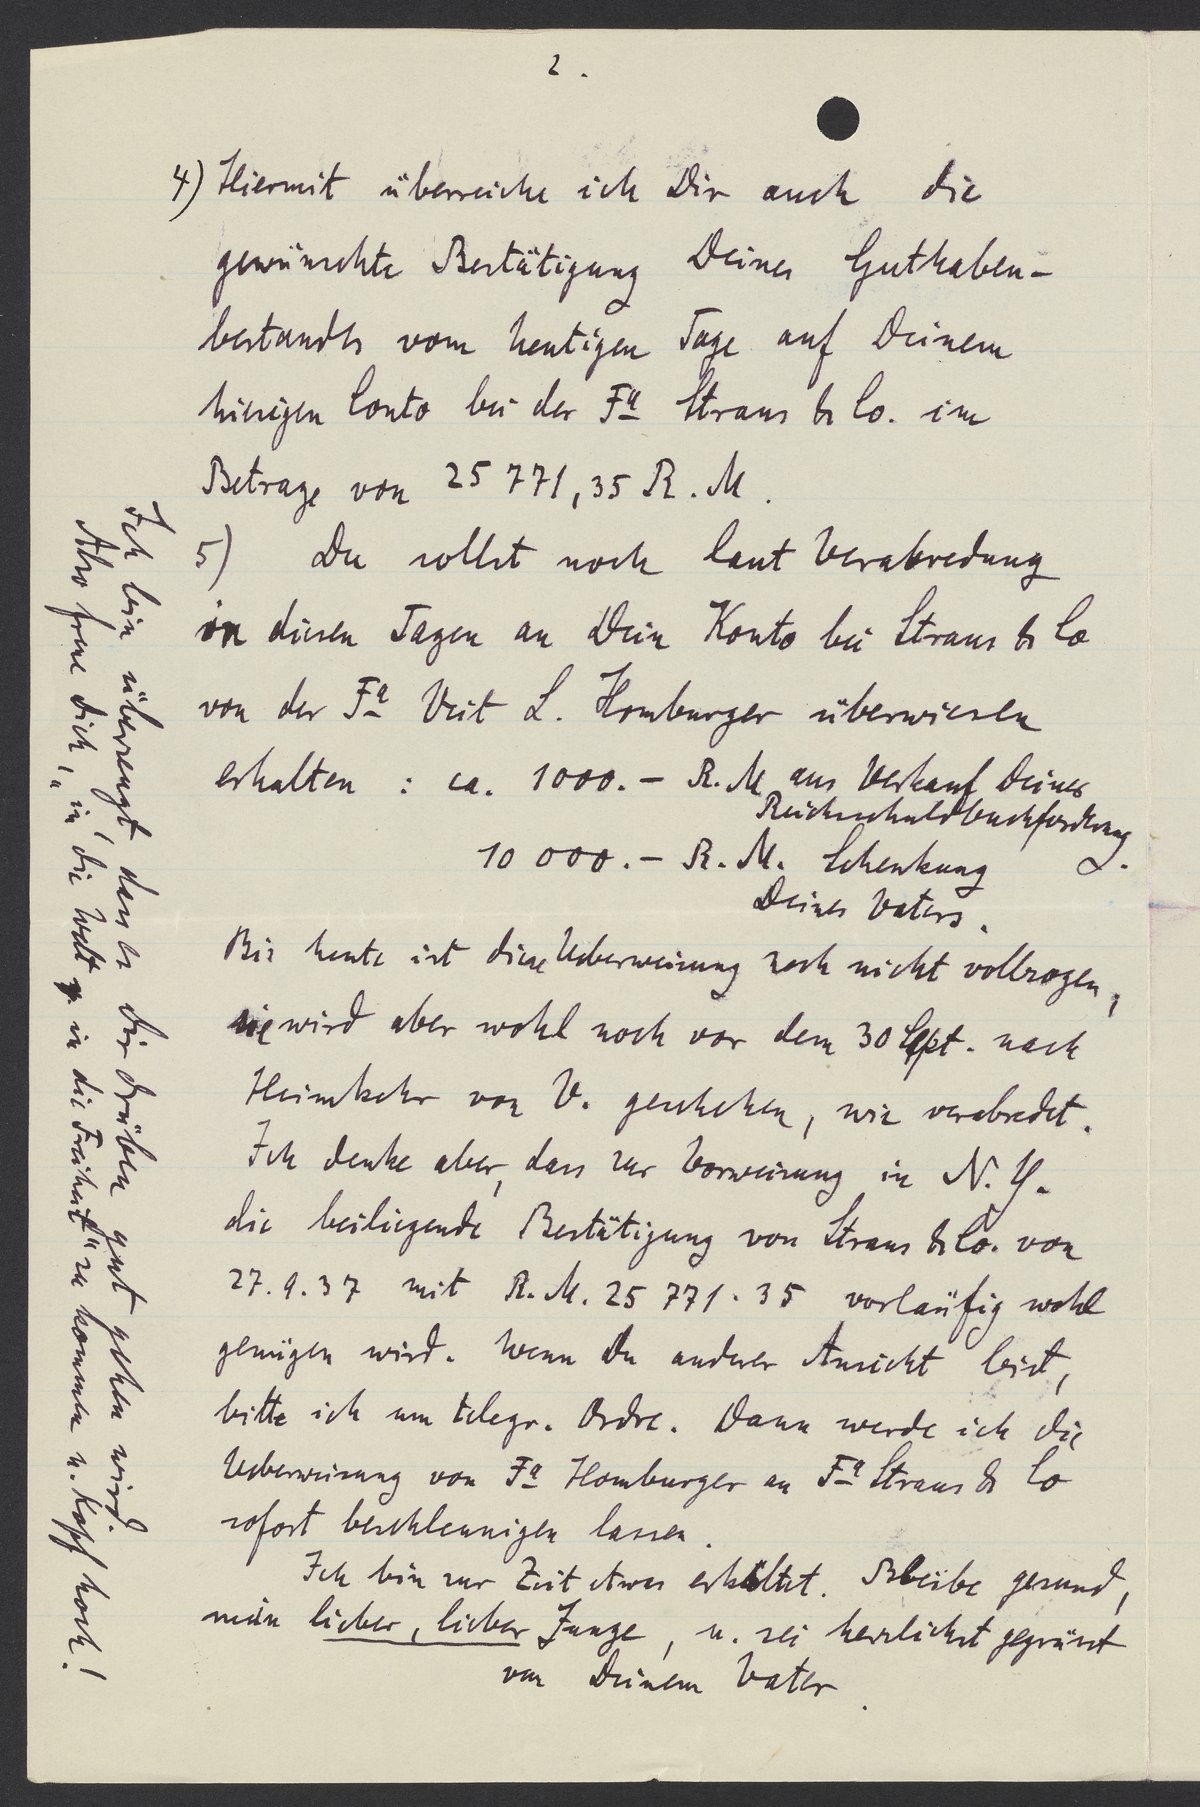 2.
4) Hiermit überreiche ich Dir auch die
gewünschte Bestätigung Deines Guthaben-
bestandes vom heutigen Tage auf Deinem
hiesigen Conto bei der Fa Straus & Co. im
Betrage von 25 771,35 R.M.
5) Du sollst noch laut Verabredung
in diesen Tagen an Dein Konto bei Straus & Co
von der Fa Veit L. Homburger überwiesen
erhalten : ca. 1000.- R.M. aus Verkauf Deiner
Reichsschuldbuchforderung.
10 000.- R.M. Schenkung
Deines Vaters.
Bis heute ist diese Ueberweisung noch nicht vollzogen,
sie wird aber wohl noch vor dem 30 Sept. nach
Heimkehr von V. geschehen, wie verabredet.
Ich denke aber, dass zur Vorweisung in N.Y.
die beiliegende Bestätigung von Straus & Co. von
27.9.37 mit R.M. 25 771.35 vorläufig wohl
genügen wird. Wenn Du anderer Ansicht bist,
bitte ich um telegr. Ordre. Dann werde ich die
Ueberweisung von Fa Homburger an Fa Straus & Co
sofort beschleunigen lassen.
Ich bin zur Zeit etwas erkältet. Bleibe gesund,
mein lieber, lieber Junge, u. sei herzlichst gegrüsst
von Deinem Vater.
Ich bin überzeugt, dass es Dir drüben gut gehen wird.
Also freue Dich, "in die Welt u. in die Freiheit" zu kommen u. Kopf hoch!